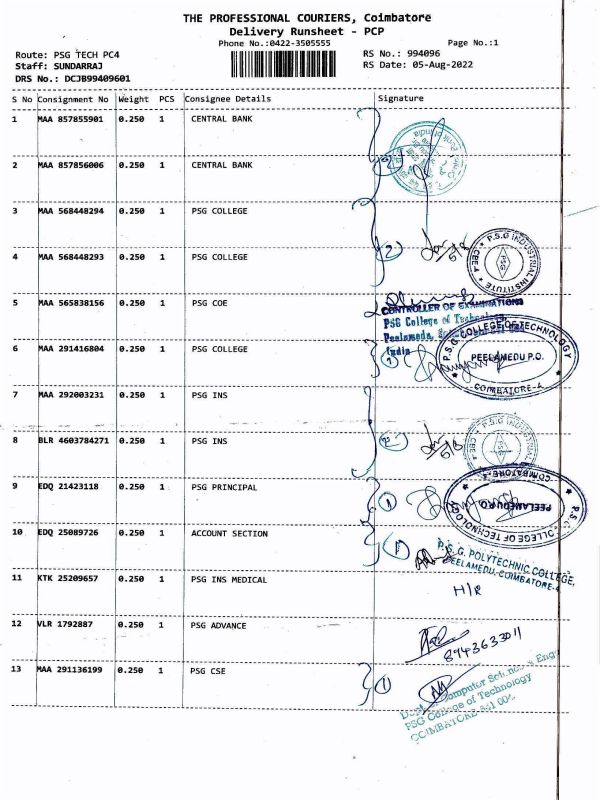 THE PROFESSIONAL COURIERS, Coimbatore
Delivery Runsheet - PCP
Phone No.:0422-3505555
Page No.:1
Route: PSG TECH PC4
RS No.: 994096
Staff: SUNDARRAJ
RS Date: 05-Aug-2022
DRS No.: DCJB99409601
S No Consignment No Weight PCS Consignee Details Signature
1 MAA 857855901 0.250 1 CENTRAL BANK
2 MAA 857856006 0.250 1 CENTRAL BANK
3 MAA 568448294 0.250 1 PSG COLLEGE
4 MAA 568448293 0.250 1 PSG COLLEGE
2
5/8
P.S.G INDUSTRIAL INSTITUTE
PSG
CBE-4
5 MAA 565838156 0.250 1 PSG COE
CONTROLLER OF EXAMINATIONS
PSG College of Technology,
Peelamedu,
India
6 MAA 291416804 0.250 1 PSG COLLEGE
P.S.G. COLLEGE OF TECHNOLOGY
PEELAMEDU P.O.
COIMBATORE-4
7 MAA 292003231 0.250 1 PSG INS
8 BLR 4603784271 0.250 1 PSG INS
5/8
9 EDQ 21423118 0.250 1 PSG PRINCIPAL
1
P.S.G. COLLEGE OF TECHNOLOGY
PEELAMEDU P.O.
COIMBATORE-4
10 EDQ 25089726 0.250 1 ACCOUNT SECTION
1
P.S.G. POLYTECHNIC COLLEGE,
PEELAMEDU-COIMBATORE-4
11 KTK 25209657 0.250 1 PSG INS MEDICAL
H/R
12 VLR 1792887 0.250 1 PSG ADVANCE
8943633011
13 MAA 291136199 0.250 1 PSG CSE
1
Dept. Computer Science & Eng
PSG College of Technology
COIMBATORE-641 004